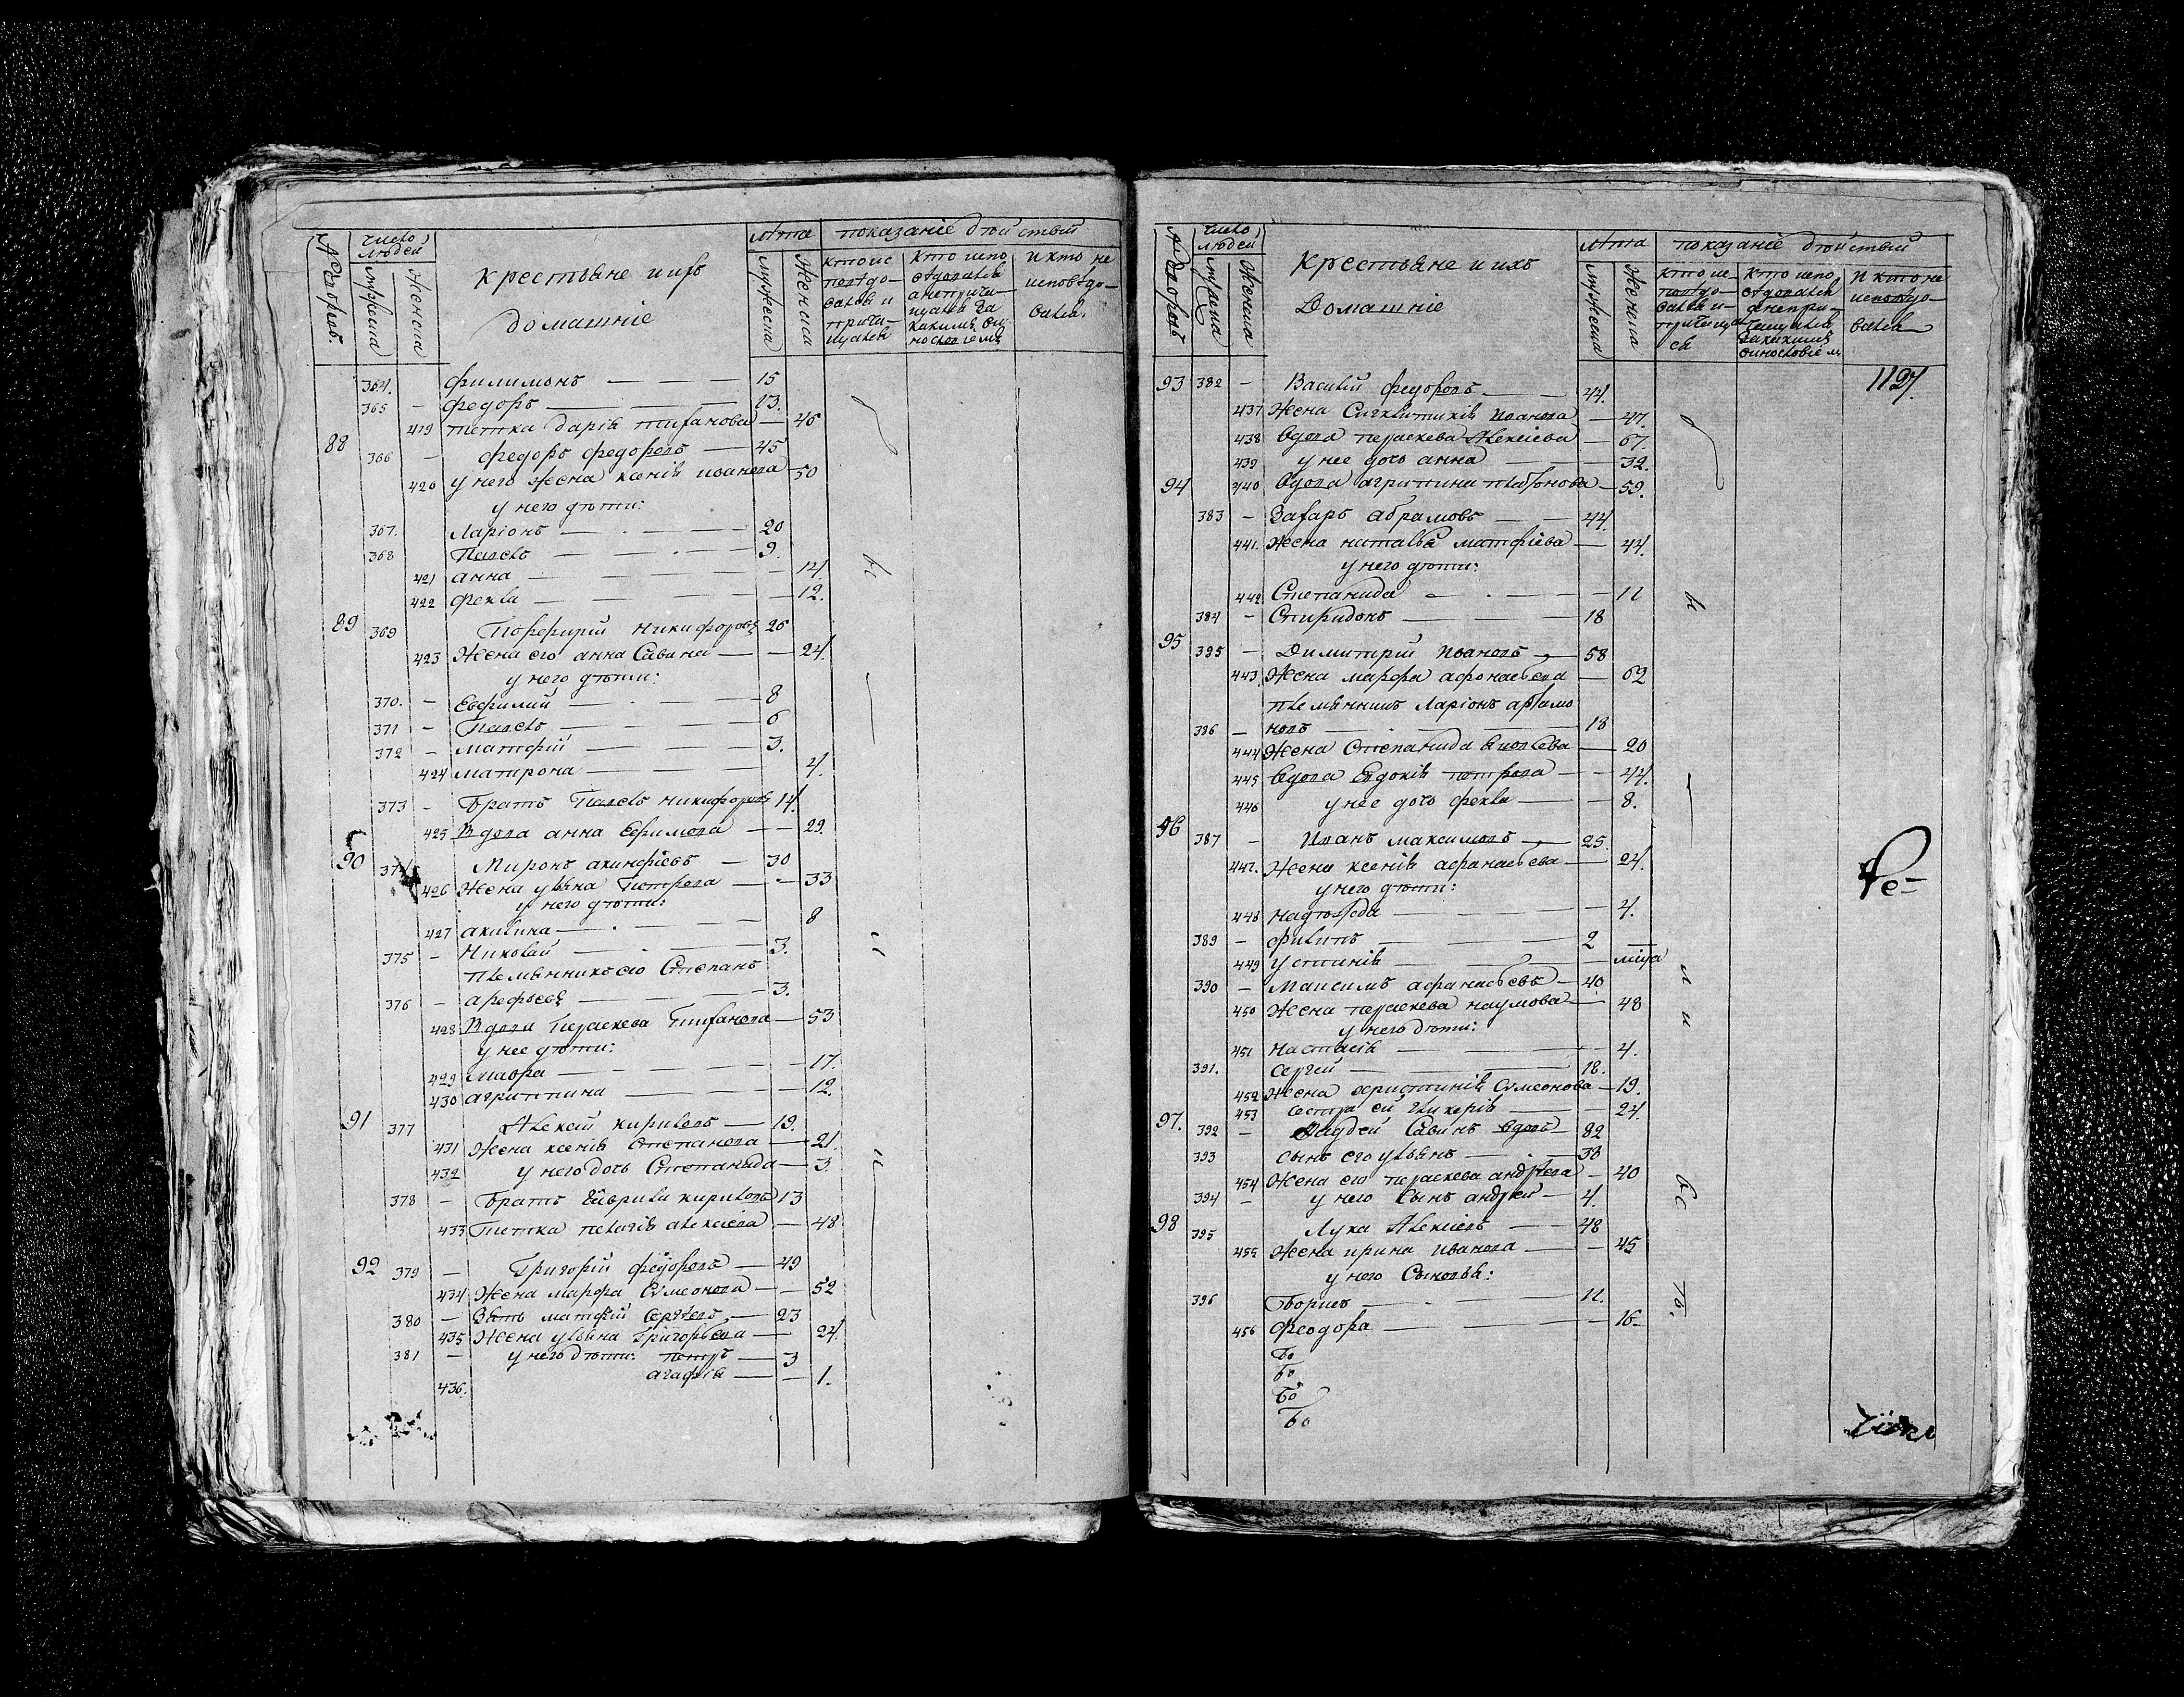 № дворовъ
число людей
мужеска
Женска
крестьяне и ихъ
домашніе
лѣта
мужеска
Женска
показаніе дѣйствій
кто ис
повѣдо
вался и
прича
щался
кто испо
вѣдовался
а не прича
щался за
какимъ ви
нословіемъ
и кто не
исповѣдо
вался
364. филимонъ 15
365 - федоръ 13.
419 тетка дарія тиханова 46
88 366 - федоръ федоровъ 45
420 у него жена ксенія иванова 50
у него дѣти:
367. Ларіонъ 20
368 Павелъ 9
421 анна 14.
422 фекла 12.
89 369 Порфирій никифоровъ 26
423 Жена его анна Савина 24.
у него дѣти:
370. - Евфимій 8
371 - Павелъ 6
372 - матфій 3.
424 матрона 4.
373 - братъ Павелъ никифоровъ 14
425 Вдова анна Ефимова 29.
90 374 Миронъ акинфіевъ 30
426 Жена уліяна Петрова 33
у него дѣти:
427 акилина 8
375 - Николай 3.
племянникъ его Степанъ
376 - арефьевъ 3.
428 Вдова Параскева Тиханова 53
у нее дѣти:
429 мавра 17.
430 агриппина 12.
91 377 Алексій кириловъ 19.
431 Жена ксенія Степанова 21.
432 у него дочь Степанида 3.
378 - братъ Гаврила кириловъ 13
433 Тетка пелагія алексіева 48
92 379 - Григорій федоровъ 49
434 Жена марфа Сѵмеонова 52
380 - Зять матфій Сергѣевъ 23
435 Жена уліяна Григорьева 24.
381 - у него дѣти: петръ 3
436. агафія 1.
№ дворовъ
число людей
мужеска
Женска
Крестьяне и ихъ
Домашніе
лѣта
мужеска
Женска
показаніе дѣйствій
кто ис
повѣдо
вался и
причащал
ся
кто испо
вѣдовался
а не при
чащался
за какимъ
винословіем
И кто не
исповѣдо
вался
1197.
93 382 - Василій федоровъ 44.
437 Жена Сигклитикія иванова 47.
438 вдова параскева Алексіева 67.
439 у нее дочь анна 32.
94 440 вдова агрипина платонова 59.
383 - Захаръ абрамовъ 44.
441. Жена наталья матфіева 44.
у него дѣти:
442 Степанида 11
384 - Спиридонъ 18
95 395 - Димитрій ивановъ 58
443 Жена марфа афонасьева 62
племянникъ Ларіонъ артамо
396 - новъ 18
444 Жена Степанида яковлева 20
445 вдова Евдокія петрова 44.
446 у нее дочь фекла 8.
96 387 - Иванъ максимовъ 25.
447. Жена ксенія афанасьева 24.
у него дѣти:
448 надежда 4.
389 - филипъ 2
449 устинія міца
390 - Максимъ афанасьевъ 40.
450 Жена параскева наумова 48
у него дѣти:
451 настасія 4.
391. Сергей 18.
452 Жена христинія Сѵмеонова 19.
453 сестра ей гликерія 24.
97. 392 - Фаддей Савинъ вдовъ 82
393 сынъ его ульянъ 38
454 Жена его параскева андрѣева 40
394 - у него Сынъ андрей 4.
98 395 Лука Алексіевъ 48
455 Жена ирина иванова 45
у него Сыновья:
396 Борисъ 11.
456 феодора 16
Бо
бо
Бо
бо
Ре-